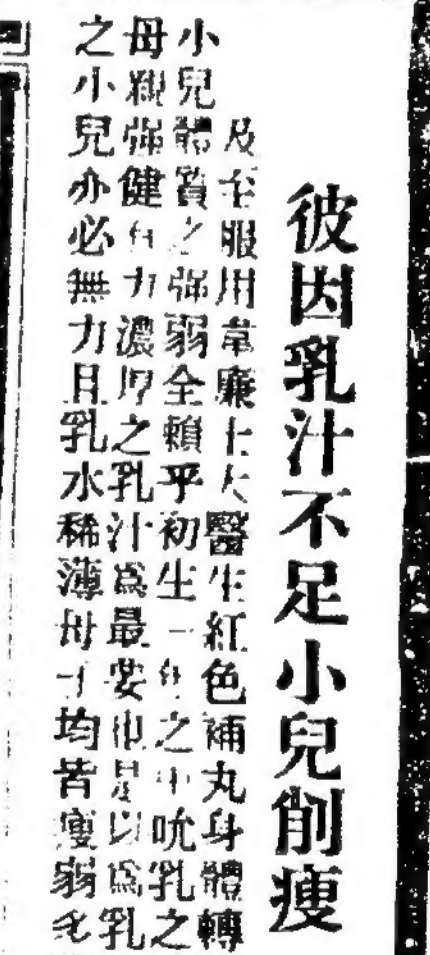 彼因乳汁不足小兒削瘦
及至服用韋廉士大醫生紅色補丸身體轉
小兒體質之强弱全賴乎初生一年之中吮乳之
母親强健有力濃厚之乳汁爲最要也是以爲乳
之小兒亦必無力且乳水稀薄母子均皆瘦弱